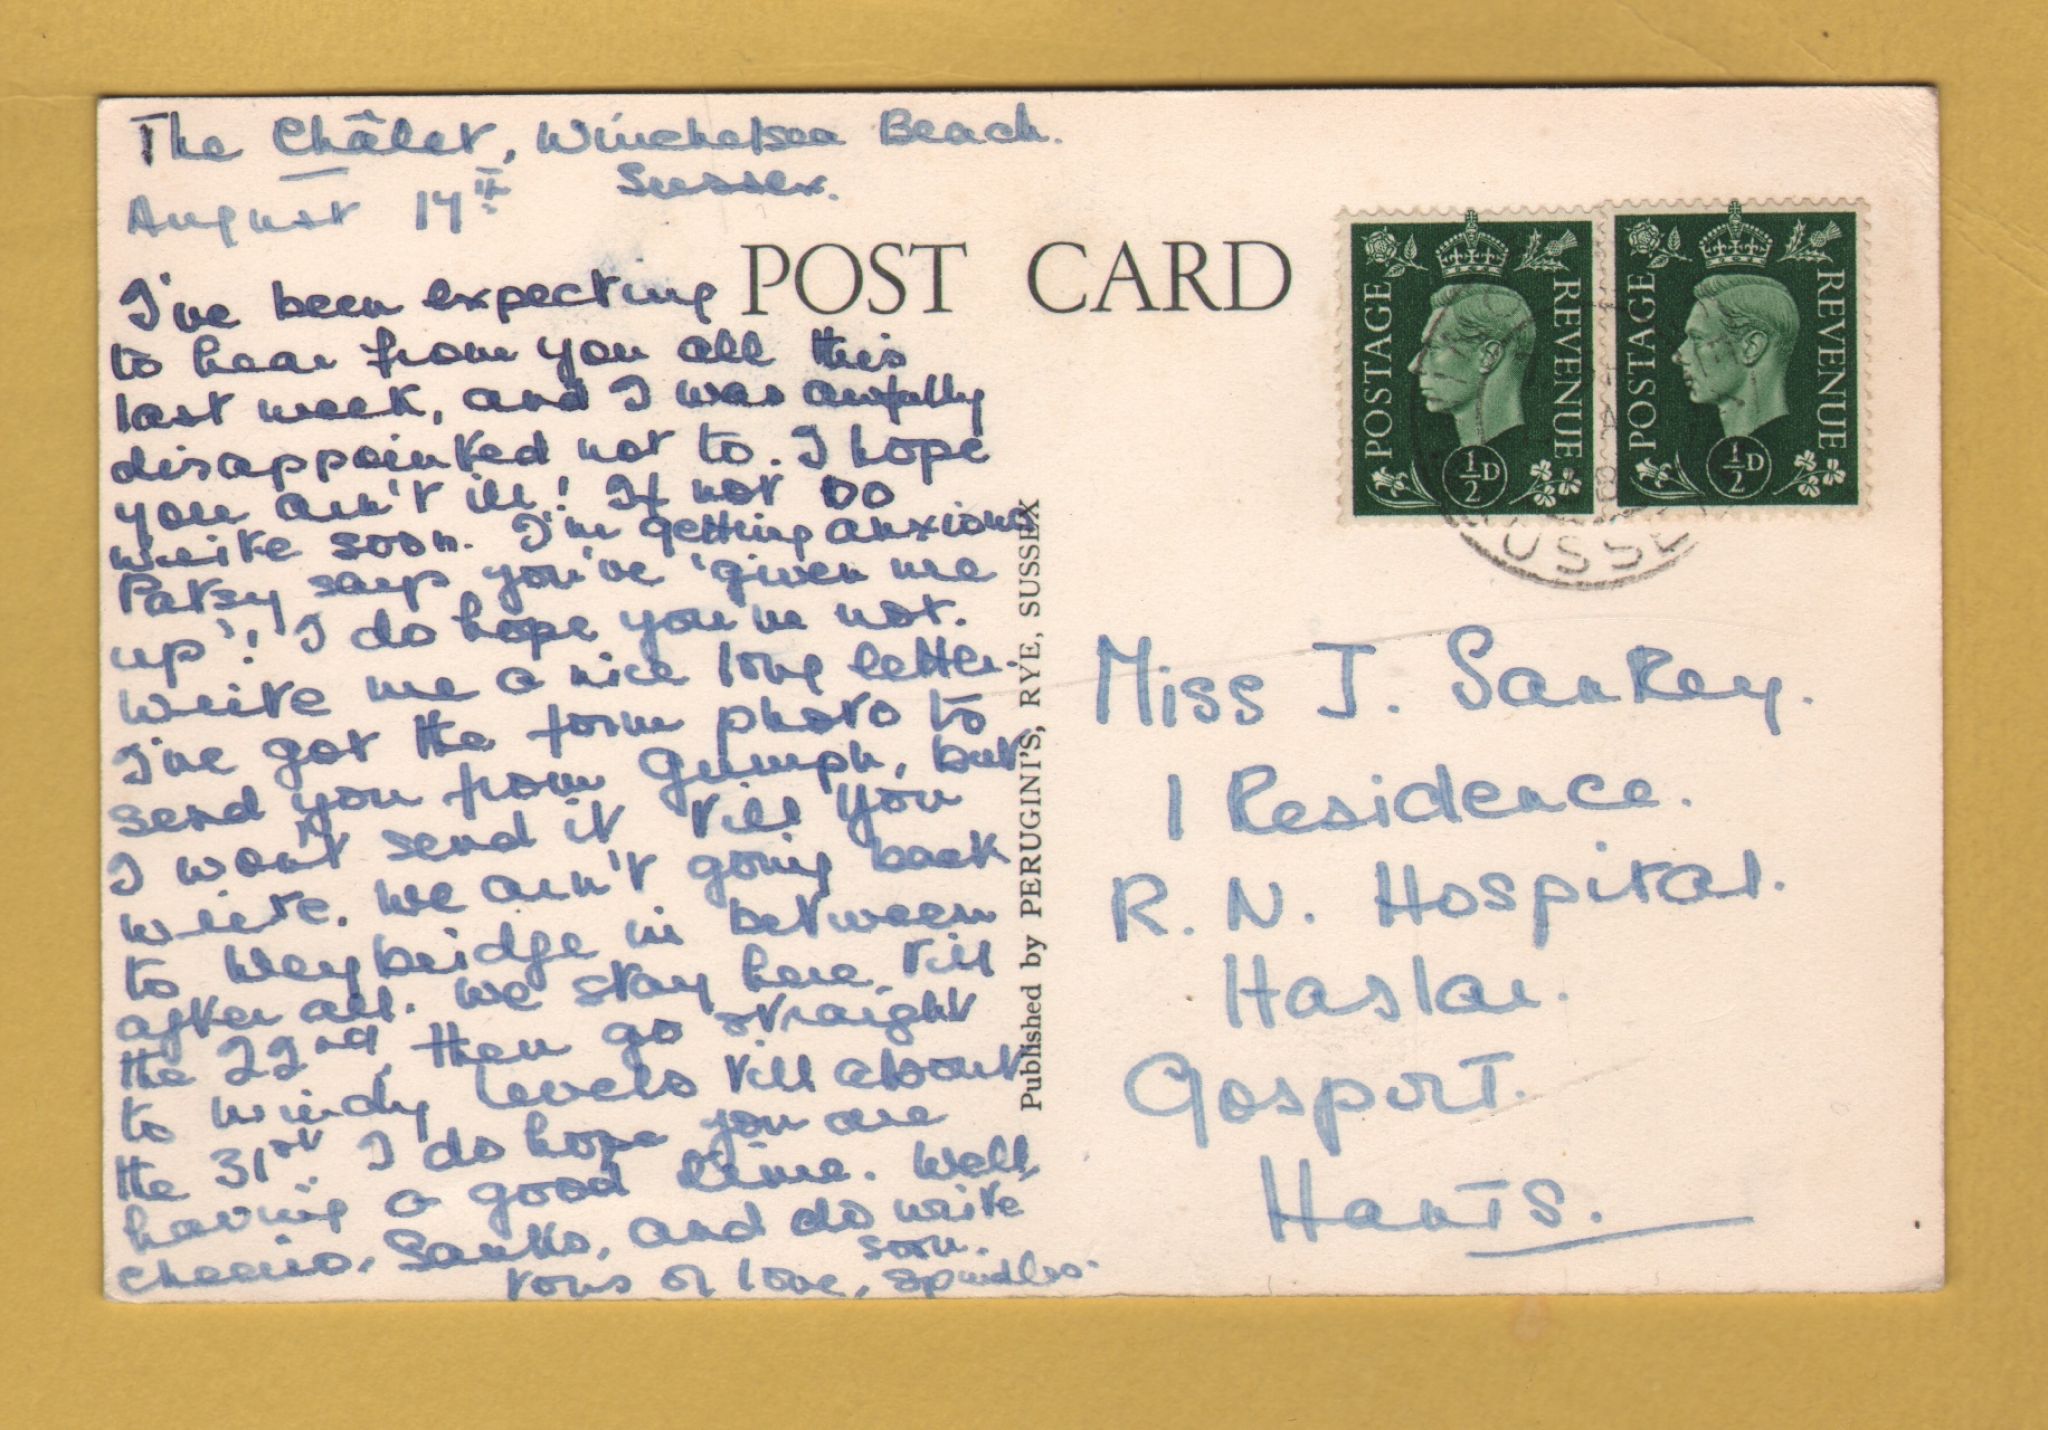 The Châlet, Winchelsea Beach.
Sussex.
August 14th
POST CARD
I've been expecting
to hear from you all this
last week, and I was awfully
disappointed not to. I hope
you ain't ill! If not DO
write soon. I'm getting anxious
Patsy says you've 'given me
up'! I do hope you've not.
Write me a nice long letter.
I've got the form photo to
send you from Grumph, but
I won't send it till you
write. We ain't going back
to Weybridge in between
after all. We stay here till
the 22nd, then go straight
to Windy Levels till about
the 31st. I do hope you are
having a good time. Well,
cheerio, Sanks, and do write
soon.
tons of love, Spindles.
Published by PERUGINI'S, RYE, SUSSEX
POSTAGE REVENUE
½D
POSTAGE REVENUE
½D
USSE
Miss J. Sankey.
1 Residence.
R. N. Hospital.
Haslar.
Gosport.
Hants.